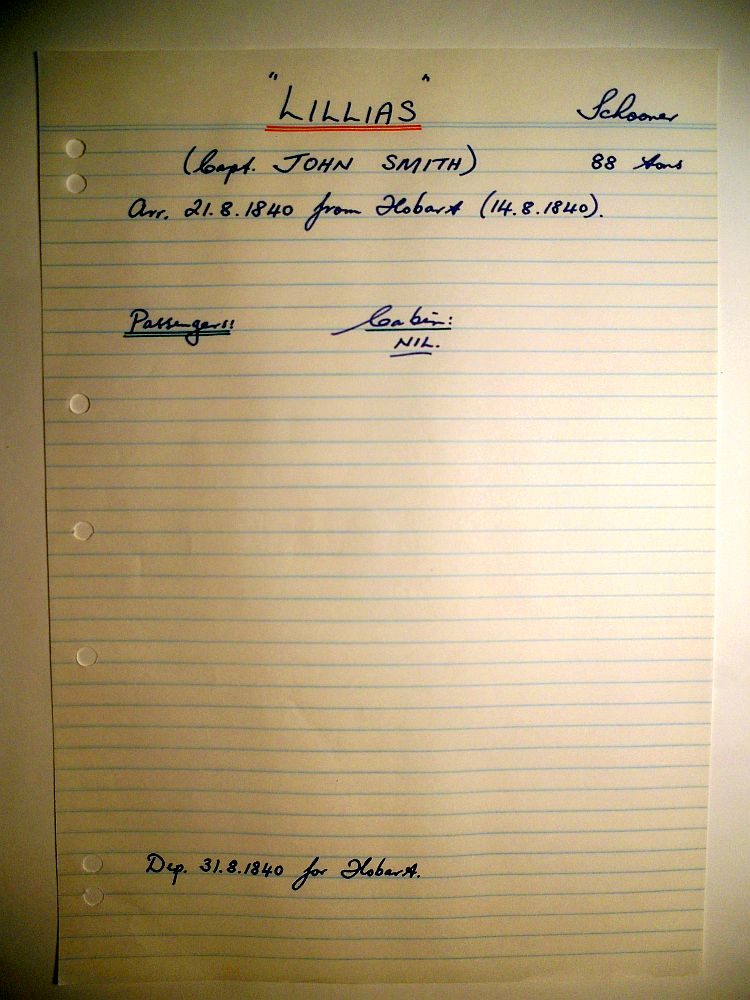 "LILLIAS" Schooner
(Capt. JOHN SMITH) 88 tons
Arr. 21.8.1840 from Hobart (14.8.1840).
Passengers: Cabin:
NIL.
Dep. 31.8.1840 for Hobart.